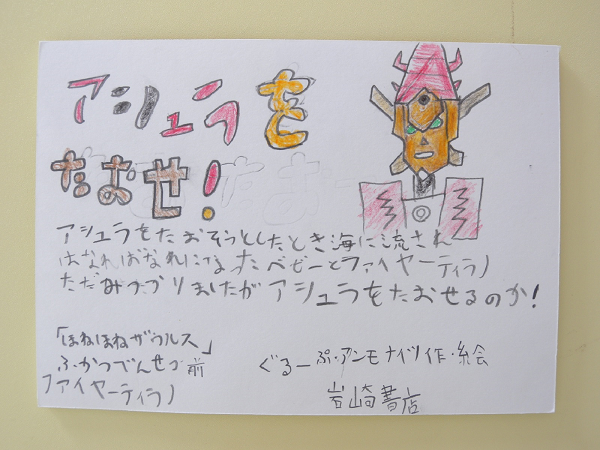 アシュラを
たおせ!
アシュラをたおそうとしたとき海に流され
はなればなれになったベビーとファイヤーティラノ
ただみブリましたがアシュラをたおせるのか!
「ほねほねザウルス」
ふかつでんせつ前
ファイヤーティラノ
ぐるーぷ・アンモナイツ作・絵
岩崎書店